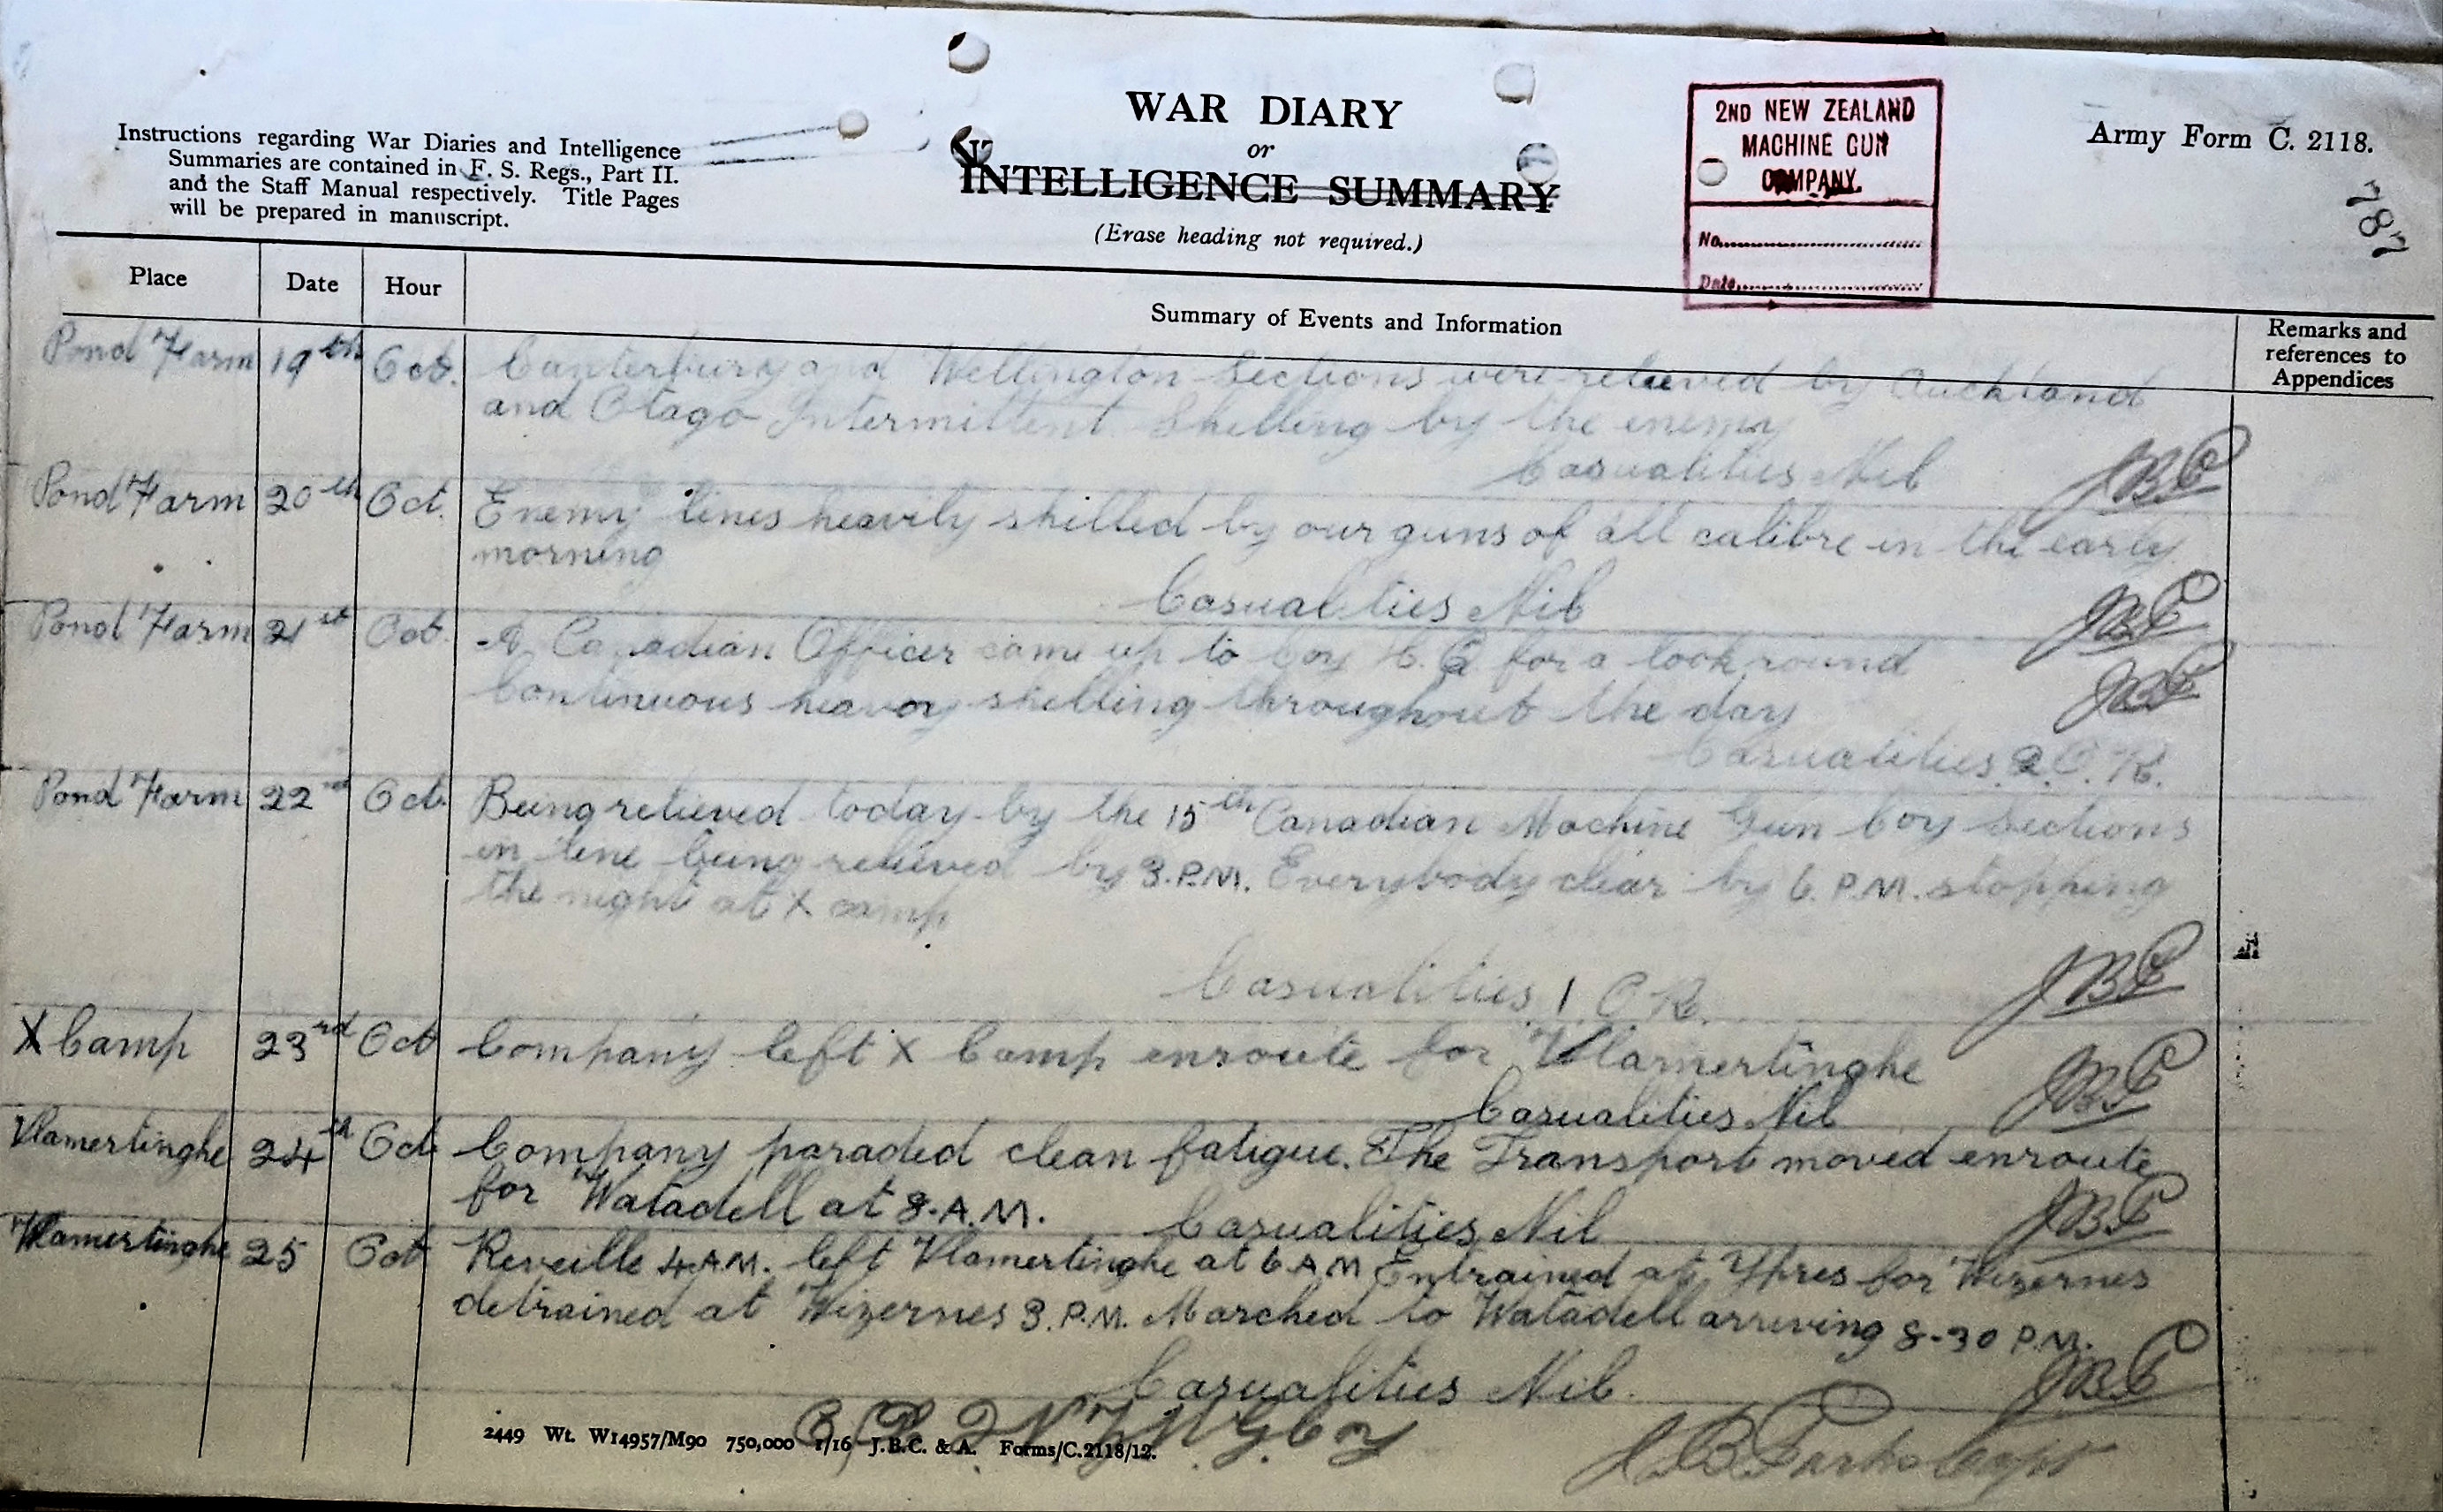 Instructions regarding War Diaries and Intelligence
Summaries are contained in F. S. Regs., Part II.
and the Staff Manual respectively. Title Pages
will be prepared in manuscript.
WAR DIARY
or
INTELLIGENCE SUMMARY
(Erase heading not required.)
2ND NEW ZEALAND
MACHINE GUN
COMPANY.
No.
Date
Army Form C. 2118.
787
Place Date Hour Summary of Events and Information Remarks and
references to
Appendices
Pond Farm 19th Oct. Canterbury and Wellington Sections were relieved by Auckland
and Otago Intermittent Shelling by the enemy
Casualities Nil JBP
Pond Farm 20th Oct. Enemy lines heavily shelled by our guns of all calibre in the early
morning
Casualities Nil JBP
Pond Farm 21st Oct. A Canadian Officer came up to Coy H.Q. for a look round
Continuous heavy shelling throughout the day JBP
Casualities 2 O.R.
Pond Farm 22nd Oct. Being relieved today by the 15th Canadian Machine Gun Coy Sections
in line being relieved by 3.P.M. Everybody clear by 6. P.M. stopping
the night at X camp
Casualities 1 O.R. JBP
X Camp 23rd Oct Company left X Camp enroute for Vlamertinghe
Casualities Nil JBP
Vlamertinghe 24th Oct Company paraded clean fatigue. The Transport moved enroute
for Watadell at 8-A.M. Casualities Nil JBP
Vlamertinghe 25 Oct Reveille 4.A.M. left Vlamertinghe at 6 A M Entrained at Ypres for Wizernes
detrained at Wizernes 3. P.M. Marched to Watadell arriving 8-30 P.M.
Casualities Nil. JBP
2449 Wt. W14957/M90 750,000 1/16 J.B.C. & A. Forms/C.2118/12.
J B Parks Capt